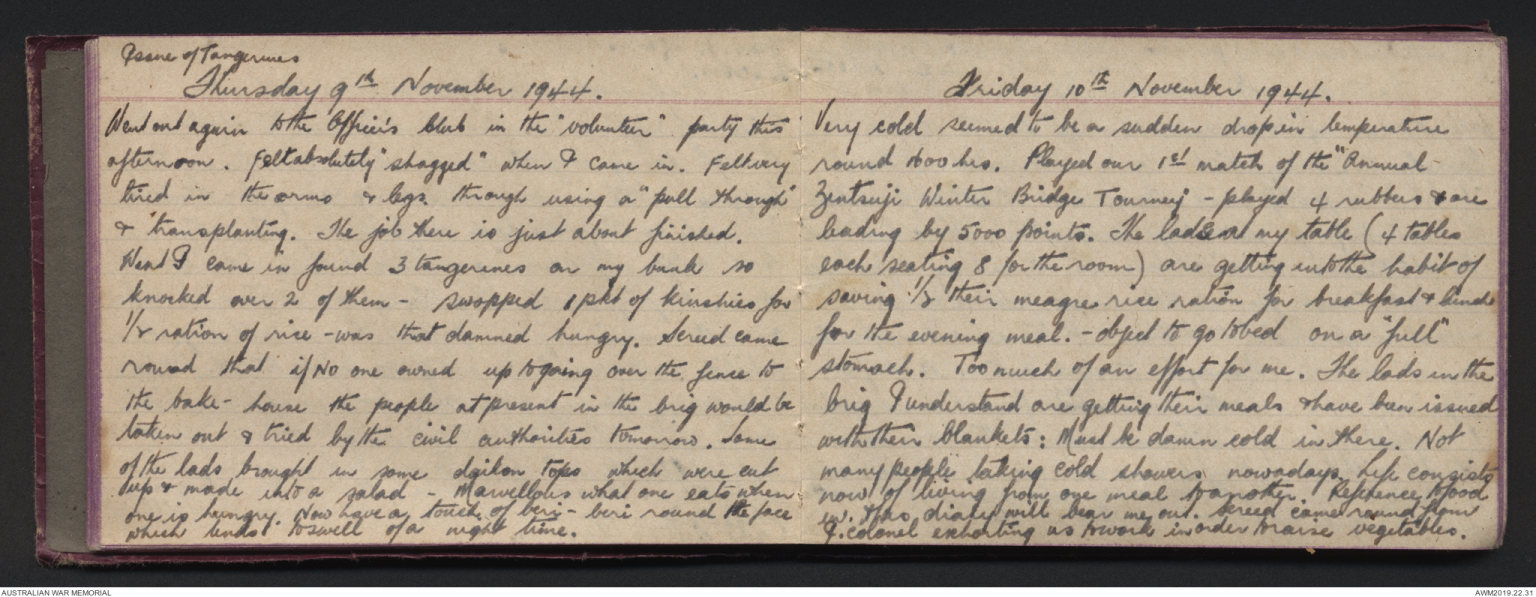 Issue of Tangerines
Thursday 9th November 1944.
Went out again to the Officer's Club in the "volunteer" party this
afternoon. Felt absolutely "shagged" when I came in. Felt very
tired in the arms & legs through using a "pull through"
& transplanting. The job there is just about finished.
When I came in found 3 tangerines on my bunk so
knocked over 2 of them - swopped 1 pkt of kinshies for
1/2 ration of rice - was that damned hungry. Screed came
round that if No one owned up to going over the fence to
the bake-house the people at present in the brig would be
taken out & tried by the civil authorities tomorrow. Some
of the lads brought in some daikon tops which were cut
up & made into a salad - Marvellous what one eats when
one is hungry. Now have a touch of beri-beri round the face
which tends to swell of a night time.
Friday 10th November 1944.
Very cold seemed to be a sudden drop in temperature
round 1600 hrs. Played our 1st match of the "Annual
Zentsuji Winter Bridge Tourney - played 4 rubbers & are
leading by 5000 points. The lads on my table (4 tables
each seating 8 for the room) are getting into the habit of
saving 1/2 their meagre rice ration for breakfast &
for the evening meal. - object to go to bed on a "full"
stomach. Too much of an effort for me. The lads in the
brig I understand are getting their meals & have been issued
with their blankets: Must be damn cold in there. Not
many people taking cold showers nowadays. Life consists
now of living from one meal to another. Reference to food
in this diary will bear me out. Screed came round from
J. colonel exhorting us to work in order to raise vegetables.
AUSTRALIAN WAR MEMORIAL
AWM2019.22.31